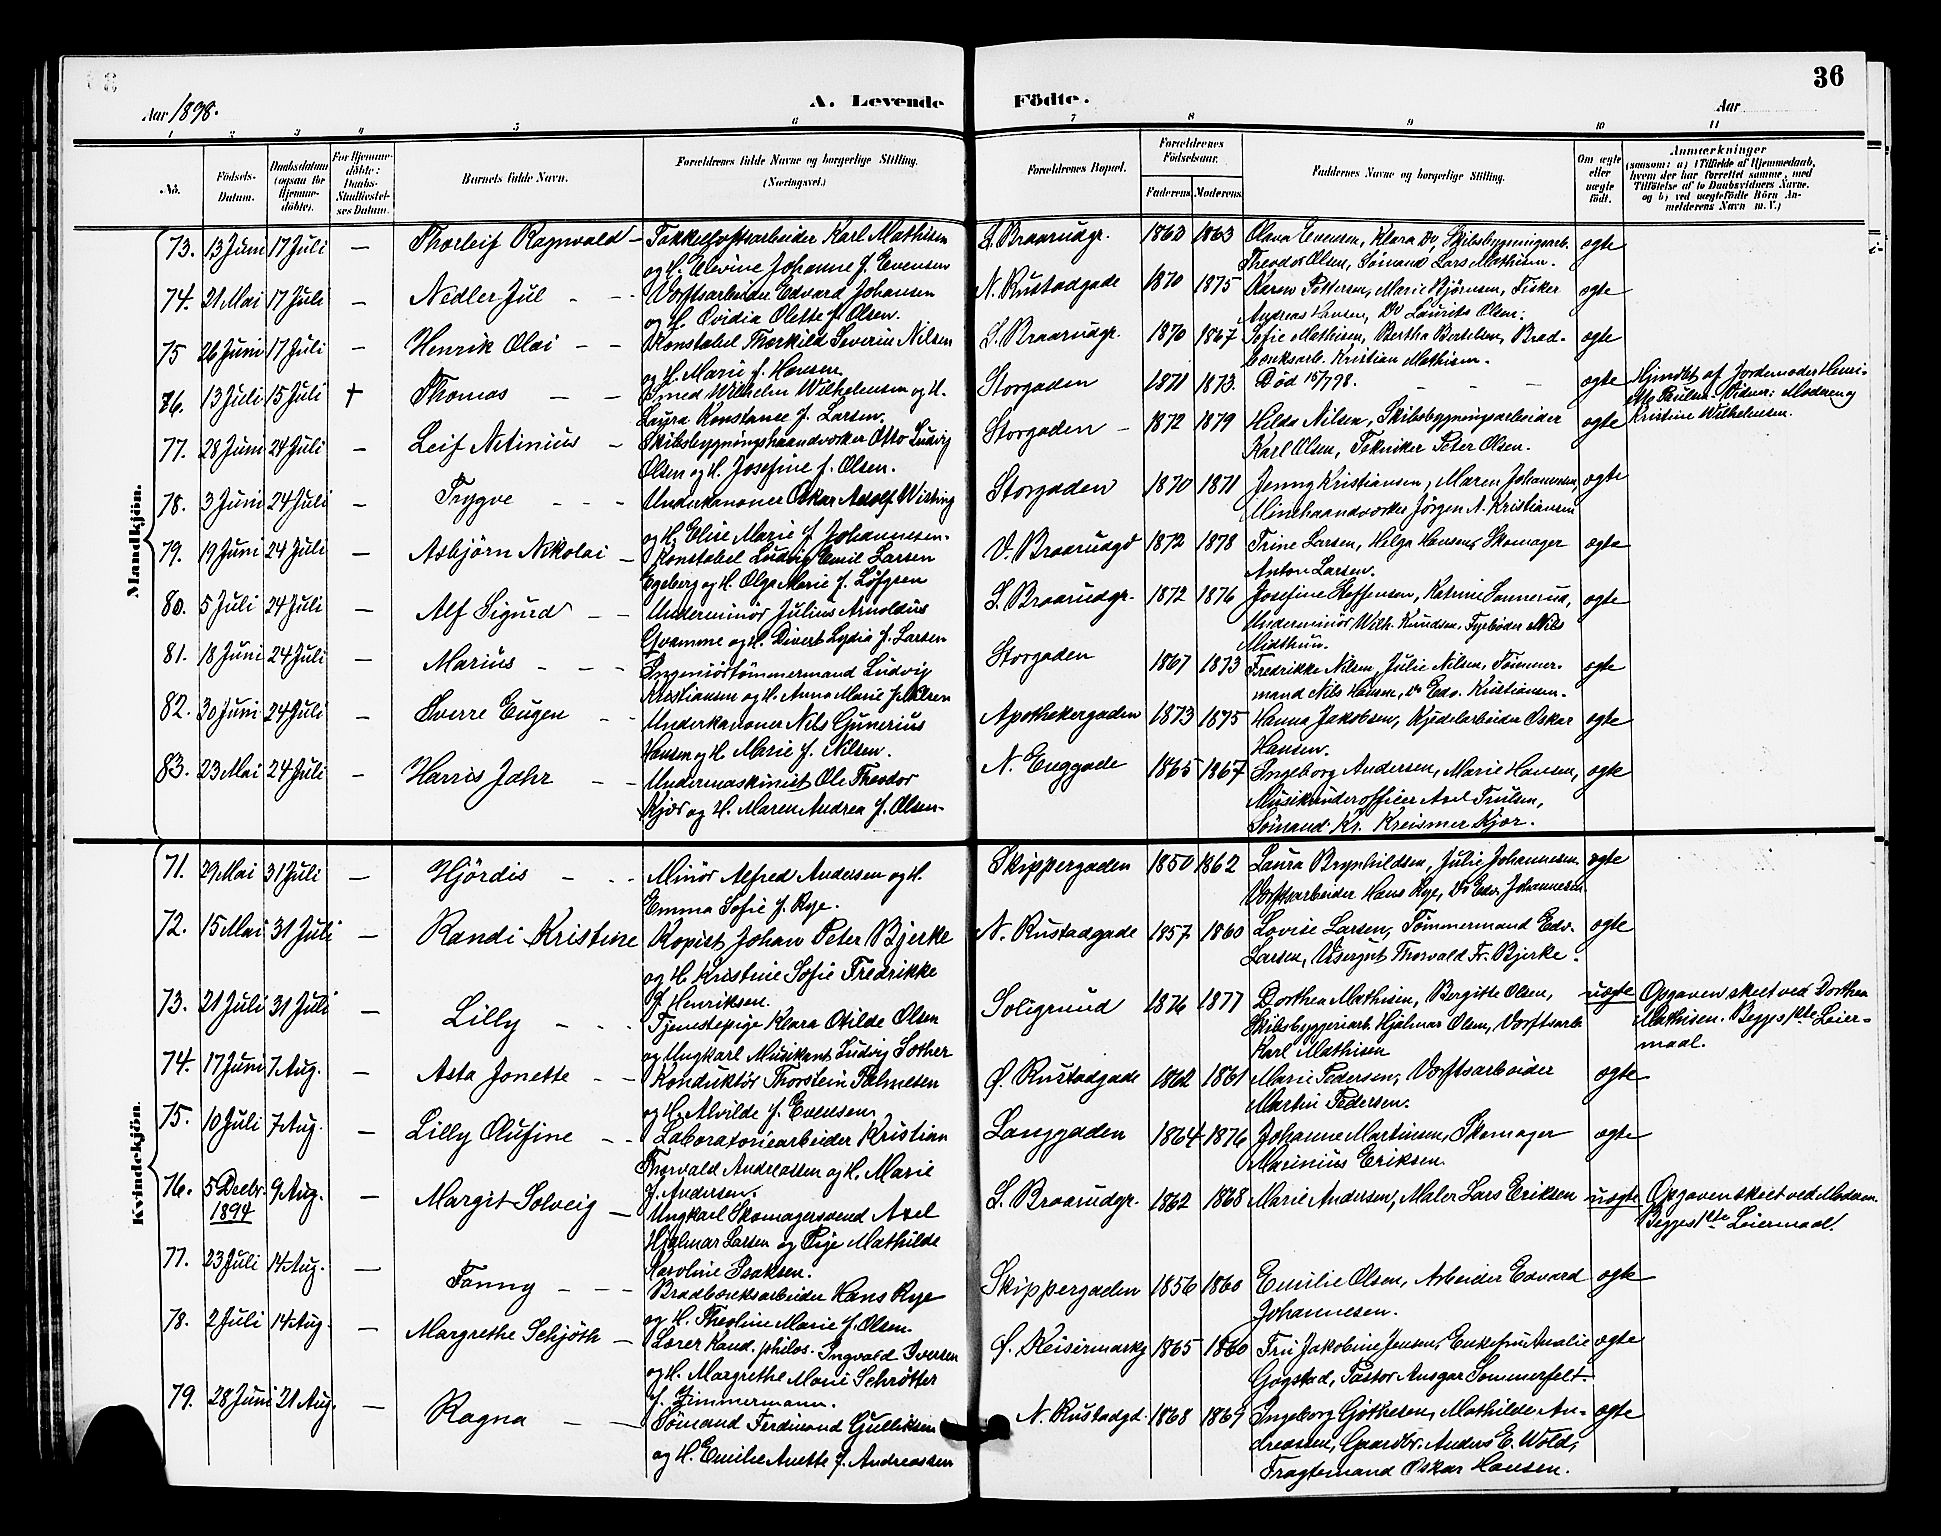 36
Aar 1898.
A. Levende Födte.
Aar
1 2 3 4 5 6 7 8 9 10 11
No.
Födsels-Datum.
Daabsdatum (ogsaa for Hjemme-döbte).
For Hjemme-döbte: Daabs-Stadfæstel-ses Datum.
Barnets fulde Navn.
Forældrenes fulde Navne og borgerlige Stilling. (Næringsvei.)
Forældrenes Bopæl.
Forældrenes Födselsaar.
Faderens. Moderens.
Faddernes Navne og borgerlige Stilling.
Om ægte eller uægte födt.
Anmærkninger
(saasom: a) i Tilfælde af Hjemmedaab, hvem der har forrettet samme, med Tilföielse af to Daabsvidners Navne. og b) ved uægtefödte Börn An-melderens Navn m. V.)
Mandkjön.
73. 13 Juni 17 Juli — Thorleif Ragnvald — Takkelloftsarbeider Karl Mathisen
og H. Elevine Johanne f. Evensen
S. Braarudgr. 1863 1863 Olava Evensen, Klara Do, Skibsbygningsarb.
Theodor Olsen, Sömand Lars Mathisen. ægte
74. 21 Mai 17 Juli — Nedler Jul — Værftsarbeider Edvard Johansen
og H. Ovidia Olette f. Olsen.
N. Rustadgade 1870 1875 Karen Pettersen, Marie Björnsen, Fisker
Andreas Hansen, Do Laurits Olsen. ægte
75 26 Juni 17 Juli — Henrik Olai — Konstabel Thorkild Severin Nilsen
og H. Marie f. Hansen.
S. Braarudgr. 1870 1867 Sofie Mathisen, Bertha Bertelsen, Brad-
bænksarb. Kristian Mathisen. ægte
76. 13 Juli 15 Juli † Thomas — Smed Wilhelm Wilhelmsen og H.
Laura Konstance f. Larsen.
Storgaden 1871 1873. Död 15/7 98. ægte
Hjmdbt af Jordemoder Henri-
ette Paulsen. Vidner: Moderen og
Kristine Wilhelmsen.
77. 28 Juni 24 Juli — Leif Netinius — Skibsbygningshaandværker Otto Ludvig
Olsen og H. Josefine f. Olsen.
Storgaden — 1872 1879 Hilda Nilsen, Skibsbygningsarbeider
Karl Olsen, Tekniker Peter Olsen. ægte
78. 3 Juni 24 Juli — Trygve — Underkanoner Oskar Adolf Wisting
og H. Elise Marie f. Johannesen.
Storgaden 1870 1871 Jenny Kristiansen, Maren Johannesen,
Minehaandværker Jörgen A. Kristiansen ægte
79. 19 Juni 24 Juli — Asbjörn Nikolai — Konstabel Ludvig Emil Larsen
Egeberg og H. Olga Marie f. Löfgren
V. Braarudgd 1872 1878 Trine Larsen, Helga Hansen, Skomager
Anton Larsen. ægte
80. 5 Juli 24 Juli — Alf Sigurd — Underminör Julius Arnoldus
Gvamme og H. Divert Lydia f. Larsen
S. Braarudgr. 1872 1876 Josefine Steffensen, Katrine Sannerud,
Underminör Wilh. Knudsen, Fyrböder Nils
Midthun. ægte
81. 18 Juni 24 Juli — Marius — Ingeniörtömmermand Ludvig
Kristiansen og H. Anna Marie f. Nilsen
Storgaden 1867 1873 Fredrikke Nilsen, Julie Nilsen, Tömmer-
mand Nils Hansen, Do Edv. Kristiansen. ægte
82. 30 Juni 24 Juli — Sverre Eugen — Underkanoner Nils Gunerius
Hansen og H. Marie f. Nilsen.
Apothekergaden 1873 1875 Hanna Jakobsen, Kjedelarbeider Oskar
Hansen. ægte
83. 23 Mai 24 Juli — Harris Jahr — Undermaskinist Ole Theodor
Kjær og H. Maren Andrea f. Olsen.
N. Enggade 1865 1867 Ingeborg Andersen, Marie Hansen,
Musikunderofficer Axel Trulsen,
Sömand Kr. Kreismer Kjær. ægte
Kvindekjön.
71. 29 Mai 31 Juli — Hjördis — Minör Alfred Andersen og H.
Emma Sofie f. Rye.
Skippergaden 1850 1862 Laura Brynhildsen, Julie Johannesen
Værftsarbeider Hans Rye, Do Edv. Johannesen ægte
72. 15 Mai 31 Juli — Randi Kristine Kopist Johan Peter Bjerke
og H. Kristine Sofie Fredrikke
f. Henriksen.
N. Rustadgade 1857 1860 Lovise Larsen, Tömmermand Edv.
Larsen, Visergut Thorvald Fr. Bjerke. ægte
73. 21 Juli 31 Juli — Lilly — Tjenestepige Klara Otilde Olsen
og Ungkarl Musikant Ludvig Sother
Soligrund 1876 1877 Dorthea Mathisen, Bergitte Olsen,
Skibsbyggeriarb. Hjalmar Olsen, Værftsarb.
Karl Mathisen uægte
Opgaven skeet ved Dorthea
Mathisen. Begges 1ste Leier-
maal.
74. 17 Juni 7 Aug. — Asta Jonette — Konduktör Thorstein Palmesen
og H. Alvilde f. Evensen.
Ö. Rustadgade 1862 1861 Marie Pedersen, Værftsarbeider
Martin Pedersen. ægte
75. 10 Juli 7 Aug. — Lilly Olufine — Laboratoriearbeider Kristian
Thorvald Andreassen og H. Marie
f. Andersen.
Langgaden 1864 1876 Johanne Martinsen, Skomager
Marinius Eriksen. ægte
76. 5 Decbr. 1894 9 Aug. — Margit Solveig — Ungkarl Skomagersvend Axel
Hjalmar Larsen og Pige Mathilde
Karoline Isaksen.
S. Braarudgr. 1862 1868 Marie Andersen, Maler Lars Eriksen uægte
Opgaven skeet ved Moderen.
Begges 1ste Leiermaal.
77. 23 Juli 14 Aug. — Fanny — Bradbænksarbeider Hans Rye
og H. Theoline Marie f. Olsen.
Skippergaden 1856 1860 Emilie Olsen, Arbeider Edvard
Johannesen. ægte
78. 2 Juli 14 Aug. — Margrethe Schjöth — Lærer Kand. philos. Ingvald Iversen
og H. Margrethe Marie Schrötter
f. Zimmermann.
Ö. Keisermarkg 1865 1860 Fru Jakobine Jensen, Enkefru Amalie
Gogstad, Pastor Ansgar Sommerfelt. ægte
79. 28 Juni 21 Aug. — Ragna — Sömand Ferdinand Gulliksen
og H. Emilie Anette f. Andreassen
N. Rustadgd. 1868 1869 Ingeborg Göthesen, Mathilde An-
dreassen, Gaardbr. Anders E. Wold,
Fragtemand Oskar Hansen. ægte